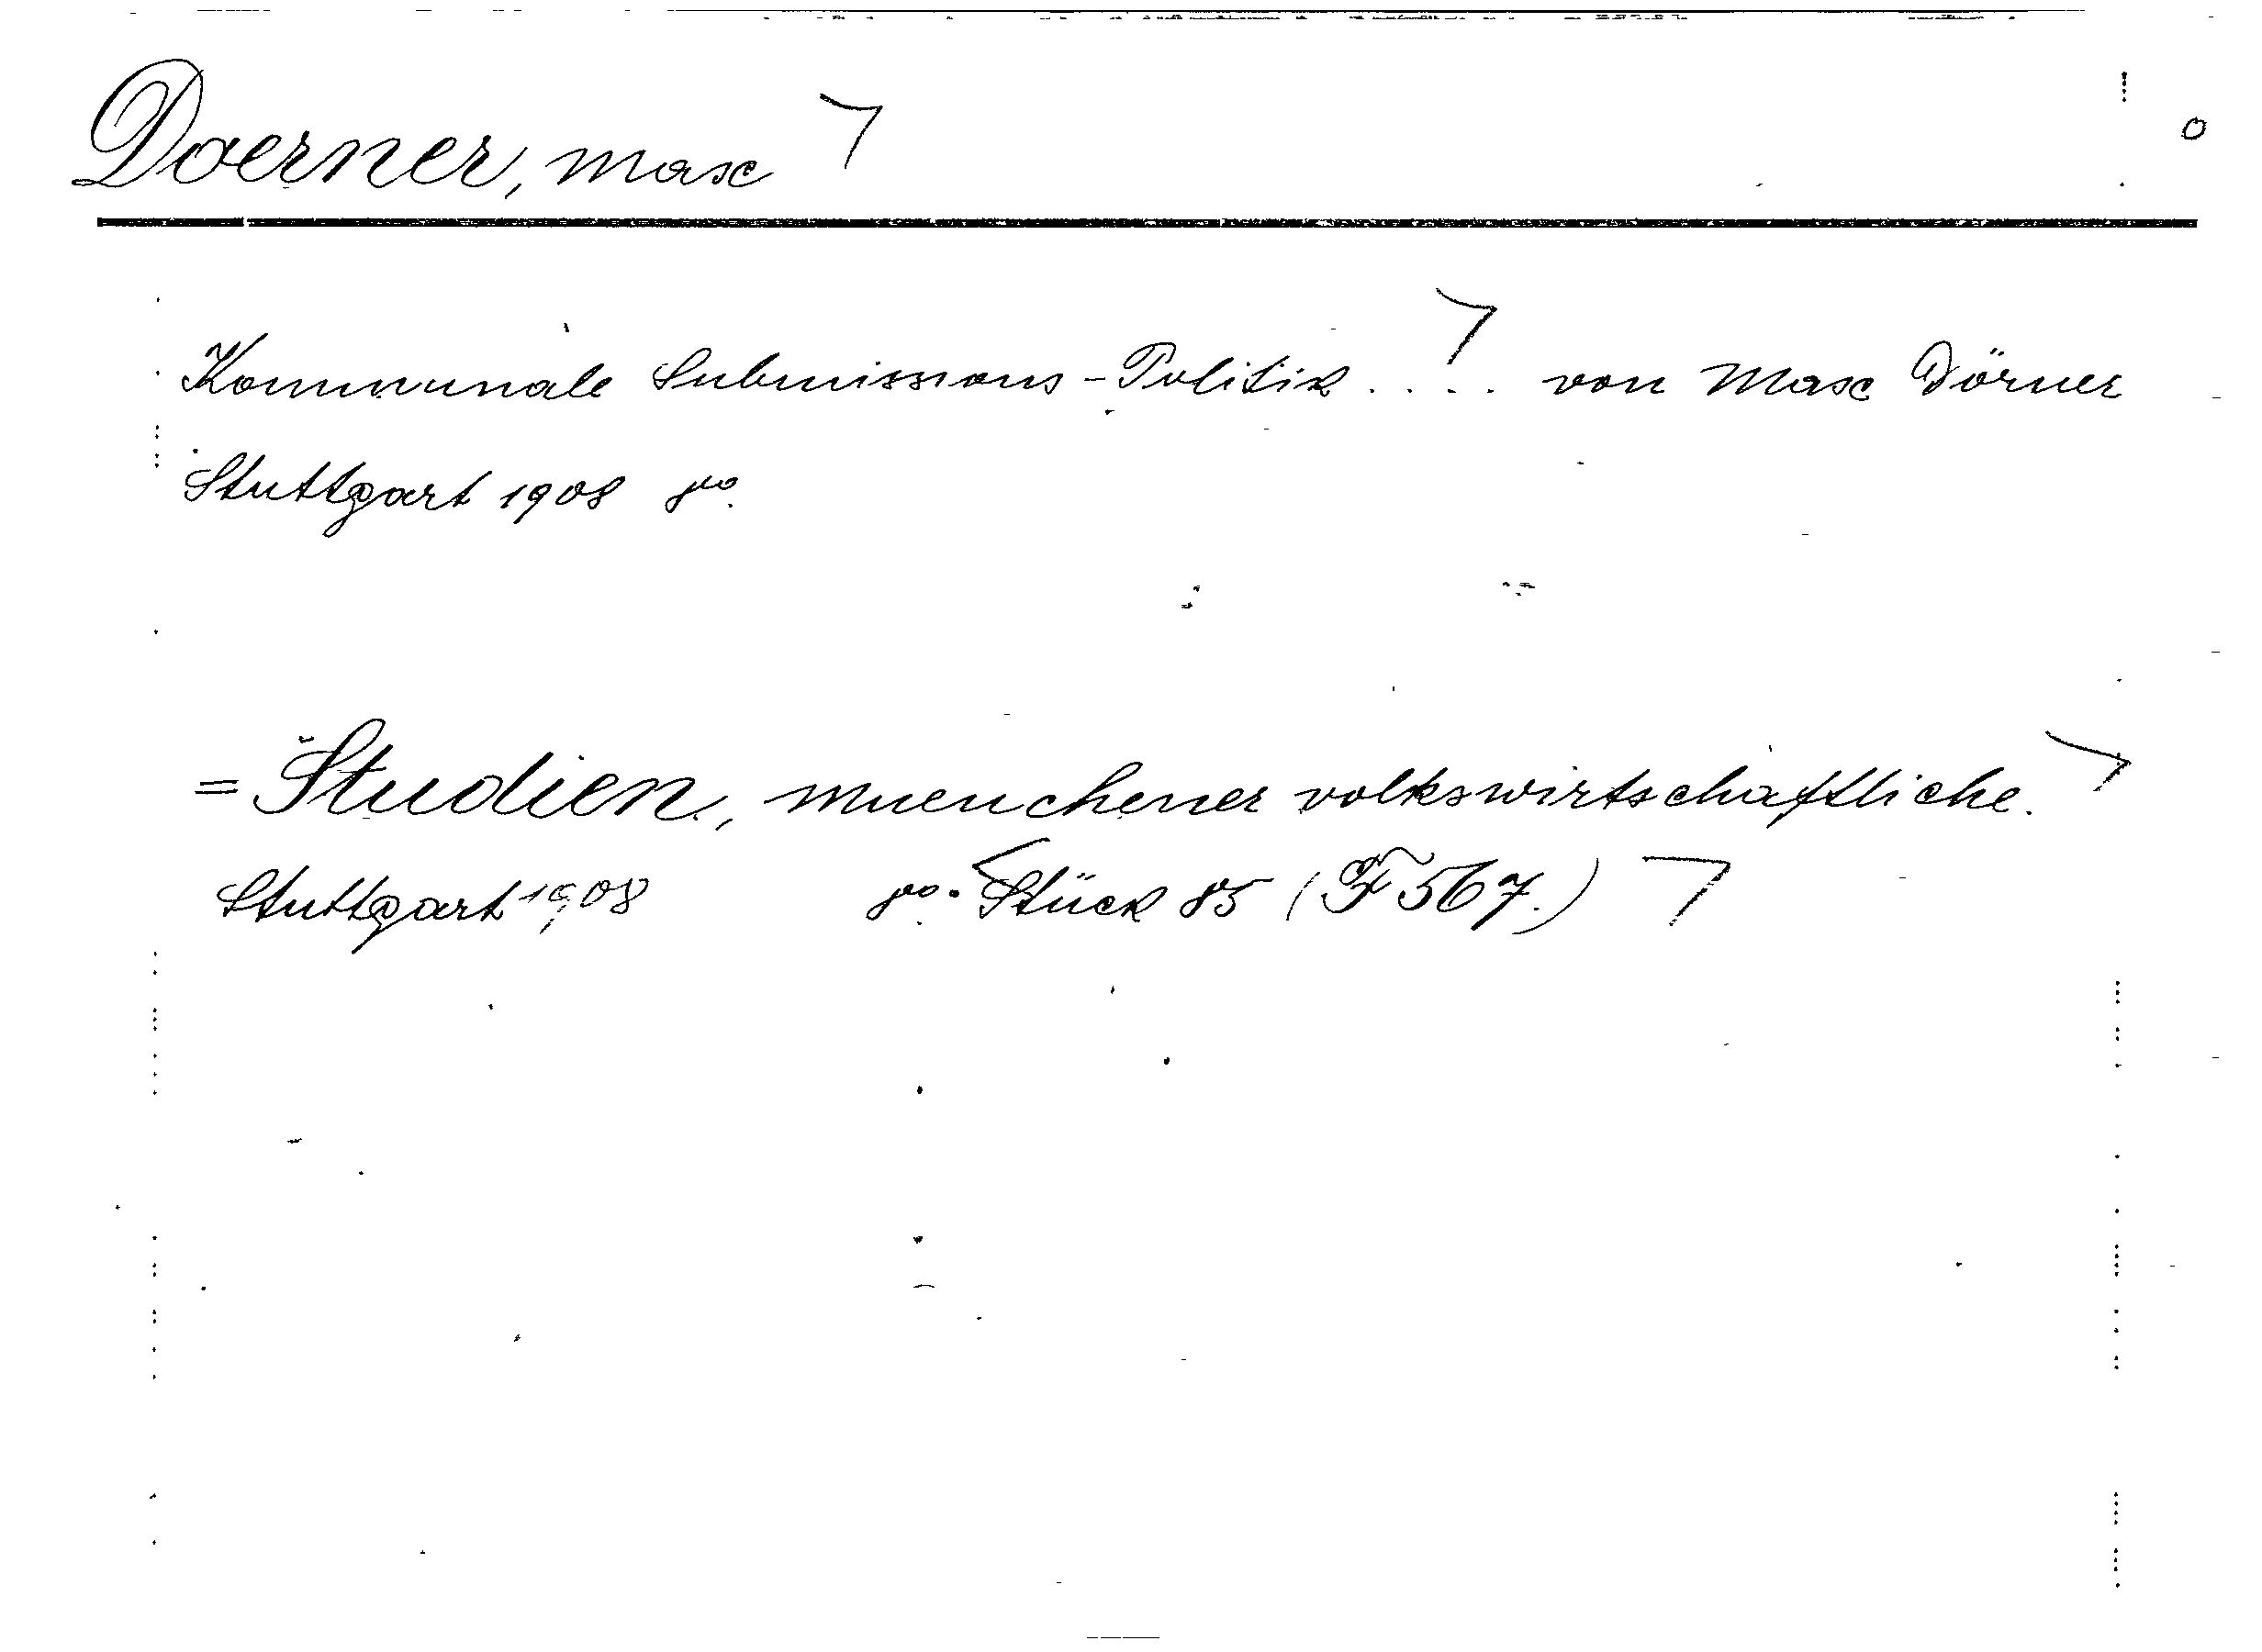 Doerner, Max
Kommunale Submissions-Politik .... von Max Dörner
Stuttgart 1908 8vo.
= Studien, muenchener volkswirtschaftliche.
Stuttgart 1908 8vo. Stück 85 (F 567.)